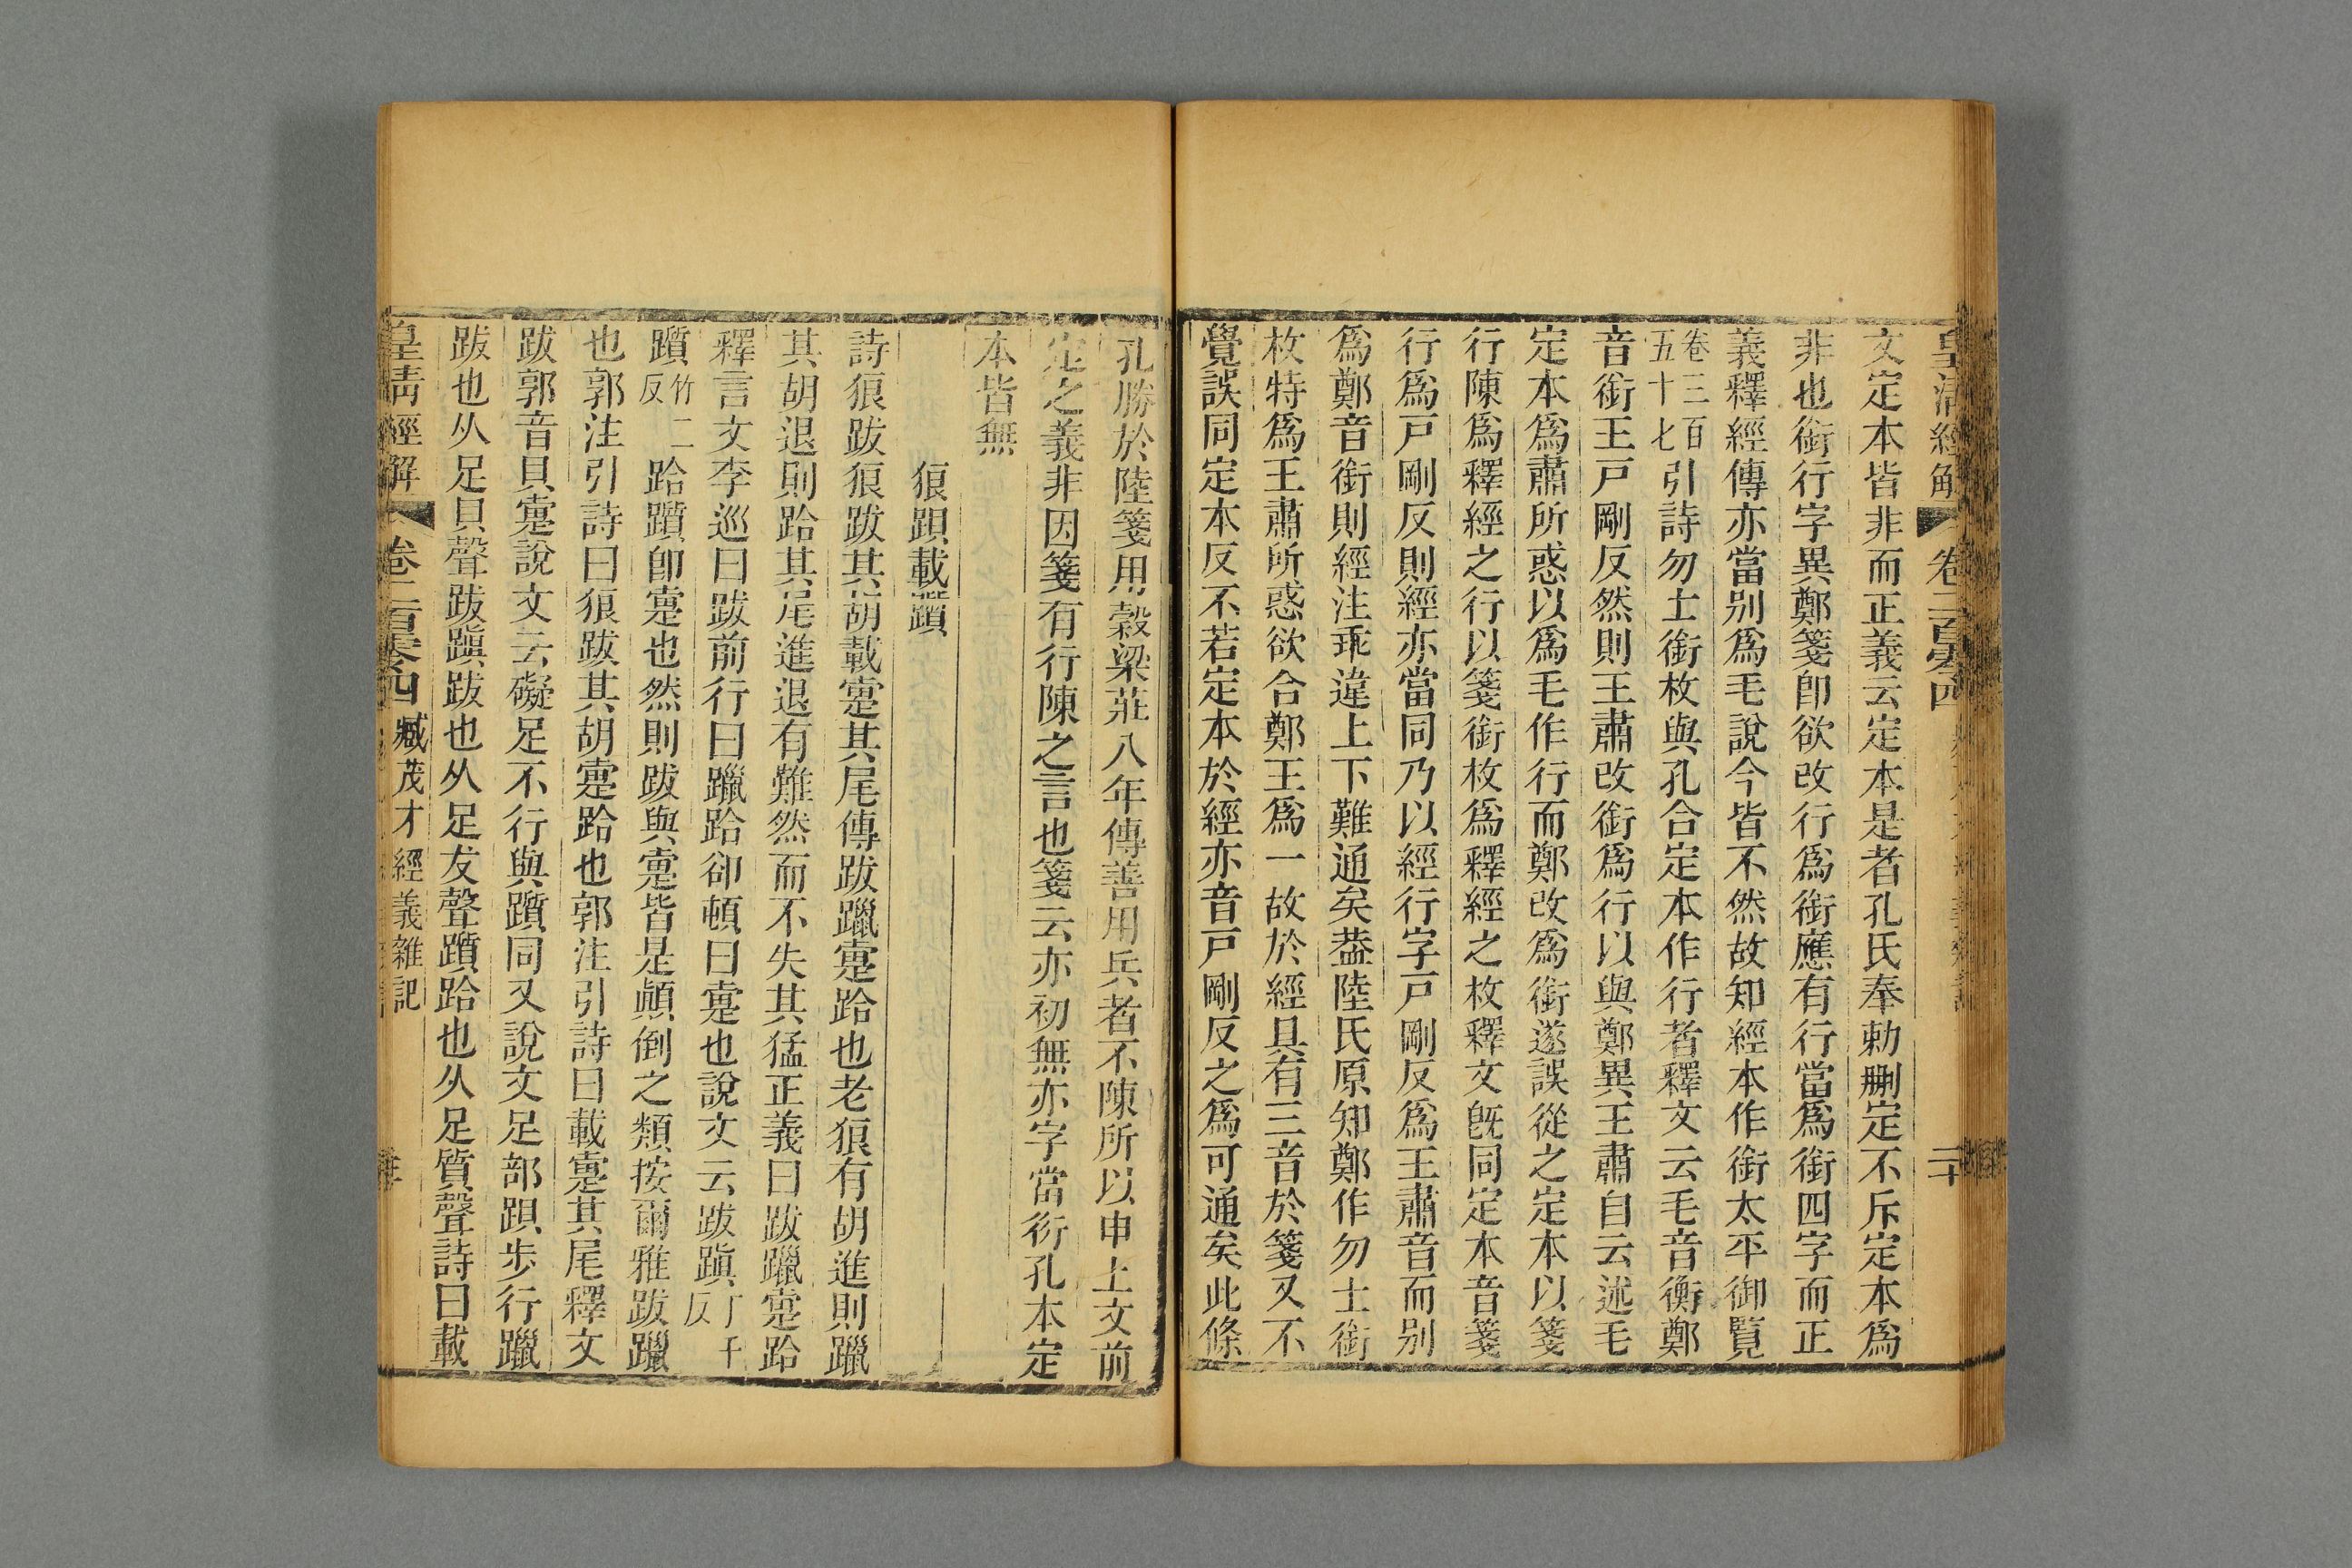 皇清經解 卷二百零四 二十
文定本皆非而正義云定本是者孔氏奉勅刪定不斥定本爲
非也銜行字異鄭箋卽欲改行爲銜應有行當爲銜四字而正
義釋經傳亦當別爲毛說今皆不然故知經本作銜太平御覽
卷三百五十七引詩勿士銜枚與孔合定本作行者釋文云毛音衡鄭
音銜王戸剛反然則王肅改銜爲行以與鄭異王肅自云述毛
定本爲肅所惑以爲毛作行而鄭改爲銜遂誤從之定本以箋
行陳爲釋經之行以箋銜枚爲釋經之枚釋文旣同定本音箋
行爲戸剛反則經亦當同乃以經行字戸剛反爲王肅音而別
爲鄭音銜則經注乖違上下難通矣葢陸氏原知鄭作勿士銜
枚特爲王肅所惑欲合鄭王爲一故於經具有三音於箋又不
覺誤同定本反不若定本於經亦音戸剛反之爲可通矣此條
孔勝於陸箋用穀梁莊八年傳善用兵者不陳所以申上文前
定之義非因箋有行陳之言也箋云亦初無亦字當衍孔本定
本皆無
狼跟載躓
詩狼跋狼跋其胡載疐其尾傳跋躐疐跲也老狼有胡進則躐
其胡退則跲其尾進退有難然而不失其猛正義曰跋躐疐跲
釋言文李巡曰跋前行曰躐跲卻頓曰疐也說文云跋蹎丁千反
躓竹二反跲躓卽疐也然則跋與疐皆是顚倒之類按爾雅跋躐
也郭注引詩曰狼跋其胡疐跲也郭注引詩曰載疐其尾釋文
跋郭音貝疐說文云礙足不行與躓同又說文足部跟步行躐
跋也从足貝聲跋蹎跋也从足犮聲躓跲也从足質聲詩曰載
皇清經解 卷二百零四 臧茂才經義雜記